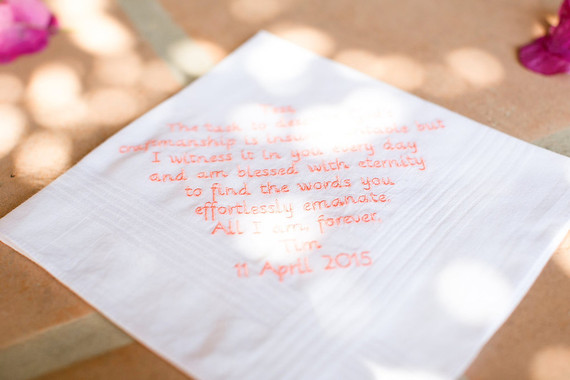 The task to
craftsmanship is but
I witness it in you every day
and am blessed with eternity
to find the words you
effortlessly emanate.
All I am, forever.
Tim
11 April 2015